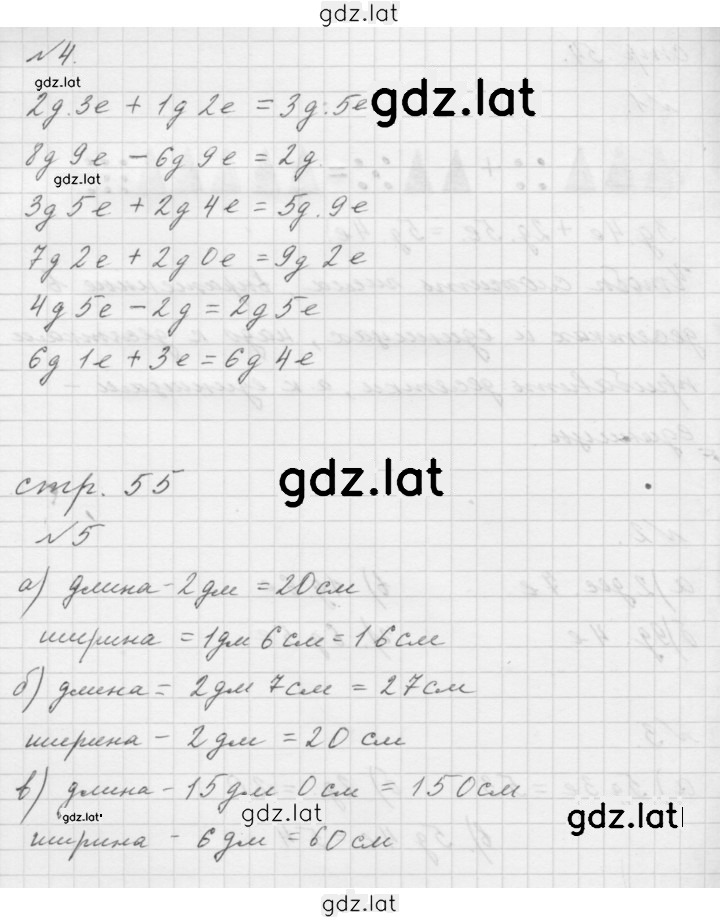 gdz.lat
№4.
gdz.lat
2д.3е + 1д 2е = 3д.5е
gdz.lat
8д 9е - 6д 9е = 2д.
gdz.lat
3д 5е + 2д 4е = 5д.9е
7д 2е + 2д 0е = 9д 2е
4д 5е - 2д = 2д 5е
6д 1е + 3е = 6д 4е
стр. 55
gdz.lat
№5
а) длина - 2 дм = 20 см
ширина = 1дм 6 см = 16 см
б) длина = 2дм 7см = 27см
ширина - 2 дм = 20 см
в) длина - 15 дм 0 см = 150 см
gdz.lat
gdz.lat
gdz.lat
ширина - 6 дм = 60 см
gdz.lat